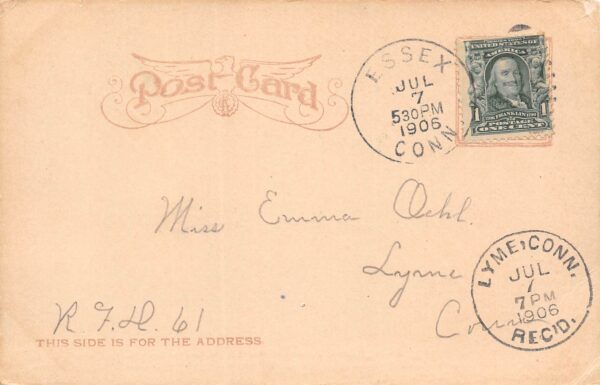 Post Card
ESSEX
JUL
7
530PM
1906
CONN
UNITED STATES OF
AMERICA
1 1
FRANKLIN
POSTAGE
ONE CENT
Miss Emma Oehl.
Lyme
Conn
LYME, CONN.
JUL
7
7PM
1906
REC'D.
R.F.D. 61
THIS SIDE IS FOR THE ADDRESS